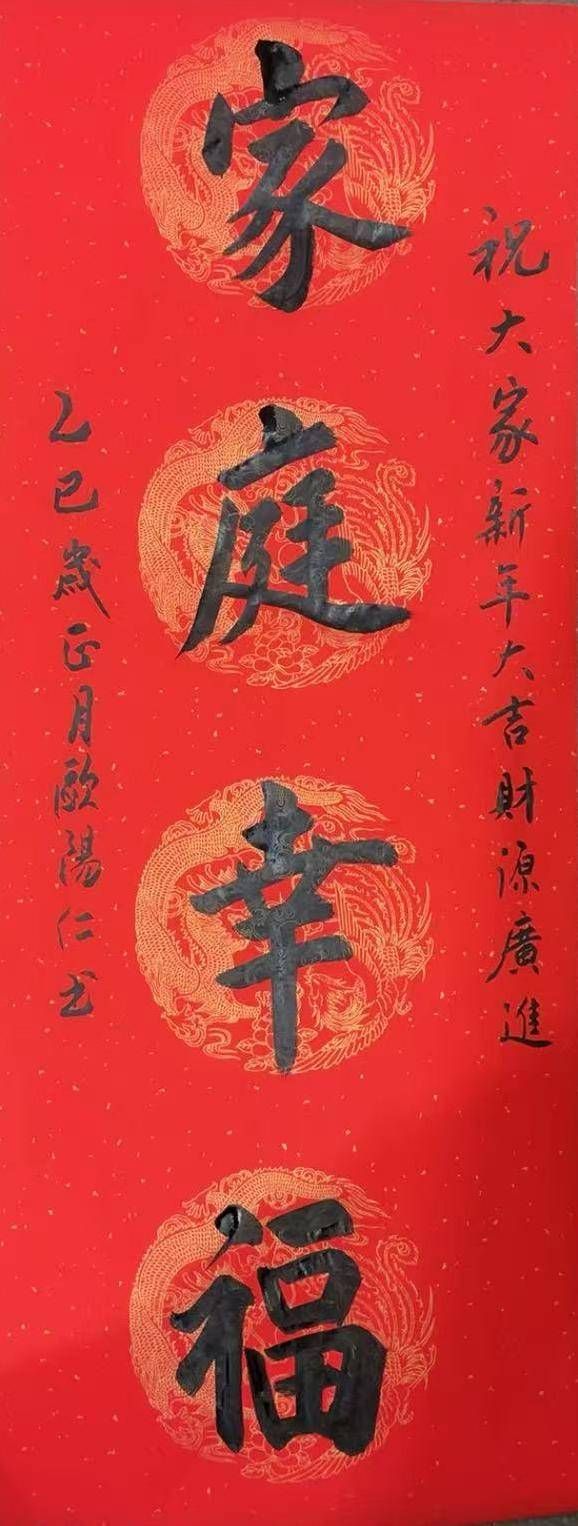 祝大家新年大吉財源廣進
家庭幸福
乙巳歲正月歐陽仁书